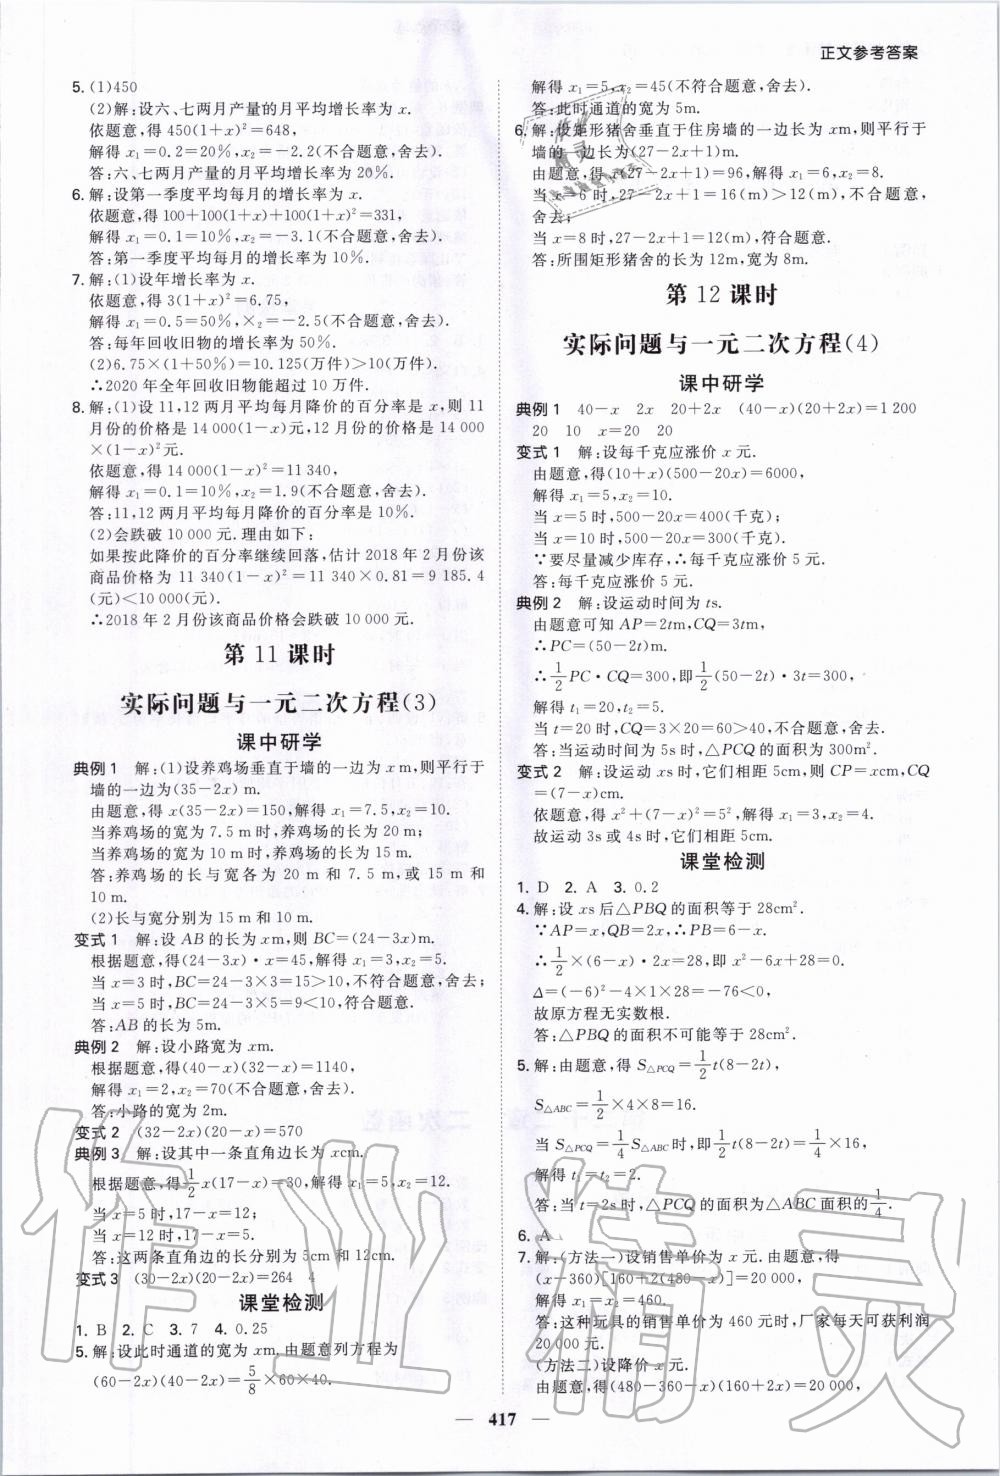 正文参考答案
5. (1)450
(2)解:设六、七两月产量的月平均增长率为 x.
依题意,得 450(1+x)²=648,
解得 x₁=0.2=20%,x₂=-2.2(不合题意,舍去).
答:六、七两月产量的月平均增长率为 20%.
6. 解:设第一季度平均每月的增长率为 x.
依题意,得 100+100(1+x)+100(1+x)²=331,
解得 x₁=0.1=10%,x₂=-3.1(不合题意,舍去).
答:第一季度平均每月的增长率为 10%.
7. 解:(1)设年增长率为 x.
依题意,得 3(1+x)²=6.75,
解得 x₁=0.5=50%,×₂=-2.5(不合题意,舍去).
答:每年回收旧物的增长率为 50%.
(2)6.75×(1+50%)=10.125(万件)>10(万件).
∴2020 年全年回收旧物能超过 10 万件.
8. 解:(1)设 11,12 两月平均每月降价的百分率是 x,则 11
月份的价格是 14 000(1-x)元,12 月份的价格是 14 000
×(1-x)² 元.
依题意,得 14 000(1-x)²=11 340,
解得 x₁=0.1=10%,x₂=1.9(不合题意,舍去).
答:11,12 两月平均每月降价的百分率是 10%.
(2)会跌破 10 000 元.理由如下:
如果按此降价的百分率继续回落,估计 2018 年 2 月份该
商品价格为 11 340(1-x)²=11 340×0.81=9 185.4
(元)<10 000(元).
∴2018 年 2 月份该商品价格会跌破 10 000 元.
第 11 课时
实际问题与一元二次方程(3)
课中研学
典例 1 解:(1)设养鸡场垂直于墙的一边为 x m,则平行于
墙的一边为(35-2x) m.
由题意,得 x(35-2x)=150,解得 x₁=7.5,x₂=10.
当养鸡场的宽为 7.5 m 时,养鸡场的长为 20 m;
当养鸡场的宽为 10 m 时,养鸡场的长为 15 m.
答:养鸡场的长与宽各为 20 m 和 7.5 m,或 15 m 和
10 m.
(2)长与宽分别为 15 m 和 10 m.
变式 1 解:设 AB 的长为 xm,则 BC=(24-3x)m.
根据题意,得(24-3x)·x=45,解得 x₁=3,x₂=5.
当 x=3 时,BC=24-3×3=15>10,不符合题意,舍去;
当 x=5 时,BC=24-3×5=9<10,符合题意.
答:AB 的长为 5m.
典例 2 解:设小路宽为 xm.
根据题意,得(40-x)(32-x)=1140,
解得 x₁=2,x₂=70(不合题意,舍去).
答:小路的宽为 2m.
变式 2 (32-2x)(20-x)=570
典例 3 解:设其中一条直角边长为 xcm.
根据题意,得 1/2 x(17-x)=30,解得 x₁=5,x₂=12.
当 x=5 时,17-x=12;
当 x=12 时,17-x=5.
答:这两条直角边的长分别为 5cm 和 12cm.
变式 3 (30-2x)(20-2x)=264 4
课堂检测
1. B 2. C 3. 7 4. 0.25
5. 解:设此时通道的宽为 xm.由题意列方程为
(60-2x)(40-2x)=5/8×60×40.
解得 x₁=5,x₂=45(不符合题意,舍去).
答:此时通道的宽为 5m.
6. 解:设矩形猪舍垂直于住房墙的一边长为 xm,则平行于
墙的一边长为(27-2x+1)m.
由题意,得 x(27-2x+1)=96,解得 x₁=6,x₂=8.
当 x=6 时,27-2x+1=16(m)>12(m),不合题意,
舍去;
当 x=8 时,27-2x+1=12(m),符合题意.
答:所围矩形猪舍的长为 12m,宽为 8m.
第 12 课时
实际问题与一元二次方程(4)
课中研学
典例 1 40-x 2x 20+2x (40-x)(20+2x)=1 200
20 10 x=20 20
变式 1 解:设每千克应涨价 x 元.
由题意,得(10+x)(500-20x)=6000,
解得 x₁=5,x₂=10.
当 x=5 时,500-20x=400(千克);
当 x=10 时,500-20x=300(千克).
∵要尽量减少库存,∴每千克应涨价 5 元.
答:每千克应涨价 5 元.
典例 2 解:设运动时间为 ts.
由题意可知 AP=2tm,CQ=3tm,
∴PC=(50-2t)m.
∴1/2 PC·CQ=300,即 1/2(50-2t)·3t=300,
解得 t₁=20,t₂=5.
当 t=20 时,CQ=3×20=60>40,不合题意,舍去.
答:当运动时间为 5s 时,△PCQ 的面积为 300m².
变式 2 解:设运动 xs 时,它们相距 5cm,则 CP=xcm,CQ
=(7-x)cm.
依题意,得 x²+(7-x)²=5²,解得 x₁=3,x₂=4.
故运动 3s 或 4s 时,它们相距 5cm.
课堂检测
1. D 2. A 3. 0.2
4. 解:设 xs 后△PBQ 的面积等于 28cm².
∵AP=x,QB=2x,∴PB=6-x.
∴1/2×(6-x)·2x=28,即 x²-6x+28=0.
Δ=(-6)²-4×1×28=-76<0,
故原方程无实数根.
答:△PBQ 的面积不可能等于 28cm².
5. 解:由题意,得 S△PCQ=1/2 t(8-2t),
S△ABC=1/2×4×8=16.
当 S△PCQ=1/4 S△ABC时,即 1/2 t(8-2t)=1/4×16,
解得 t₁=t₂=2.
答:当 t=2s 时,△PCQ 的面积为△ABC 面积的 1/4.
6. A
7. 解:(方法一)设销售单价为 x 元.由题意,得
(x-360)[160+2(480-x)]=20 000,
解得 x₁=x₂=460.
答:这种玩具的销售单价为 460 元时,厂家每天可获利润
20 000 元.
(方法二)设降价 x 元.
由题意,得(480-360-x)(160+2x)=20 000,
— 417 —
作业精灵